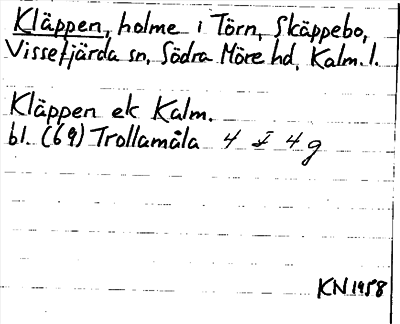 Kläppen, holme i Törn, Skäppebo,
Vissefjärda sn, Södra Möre hd, Kalm. l.
Kläppen ek Kalm.
bl. (69) Trollamåla 4 I 4 g
KN 1958